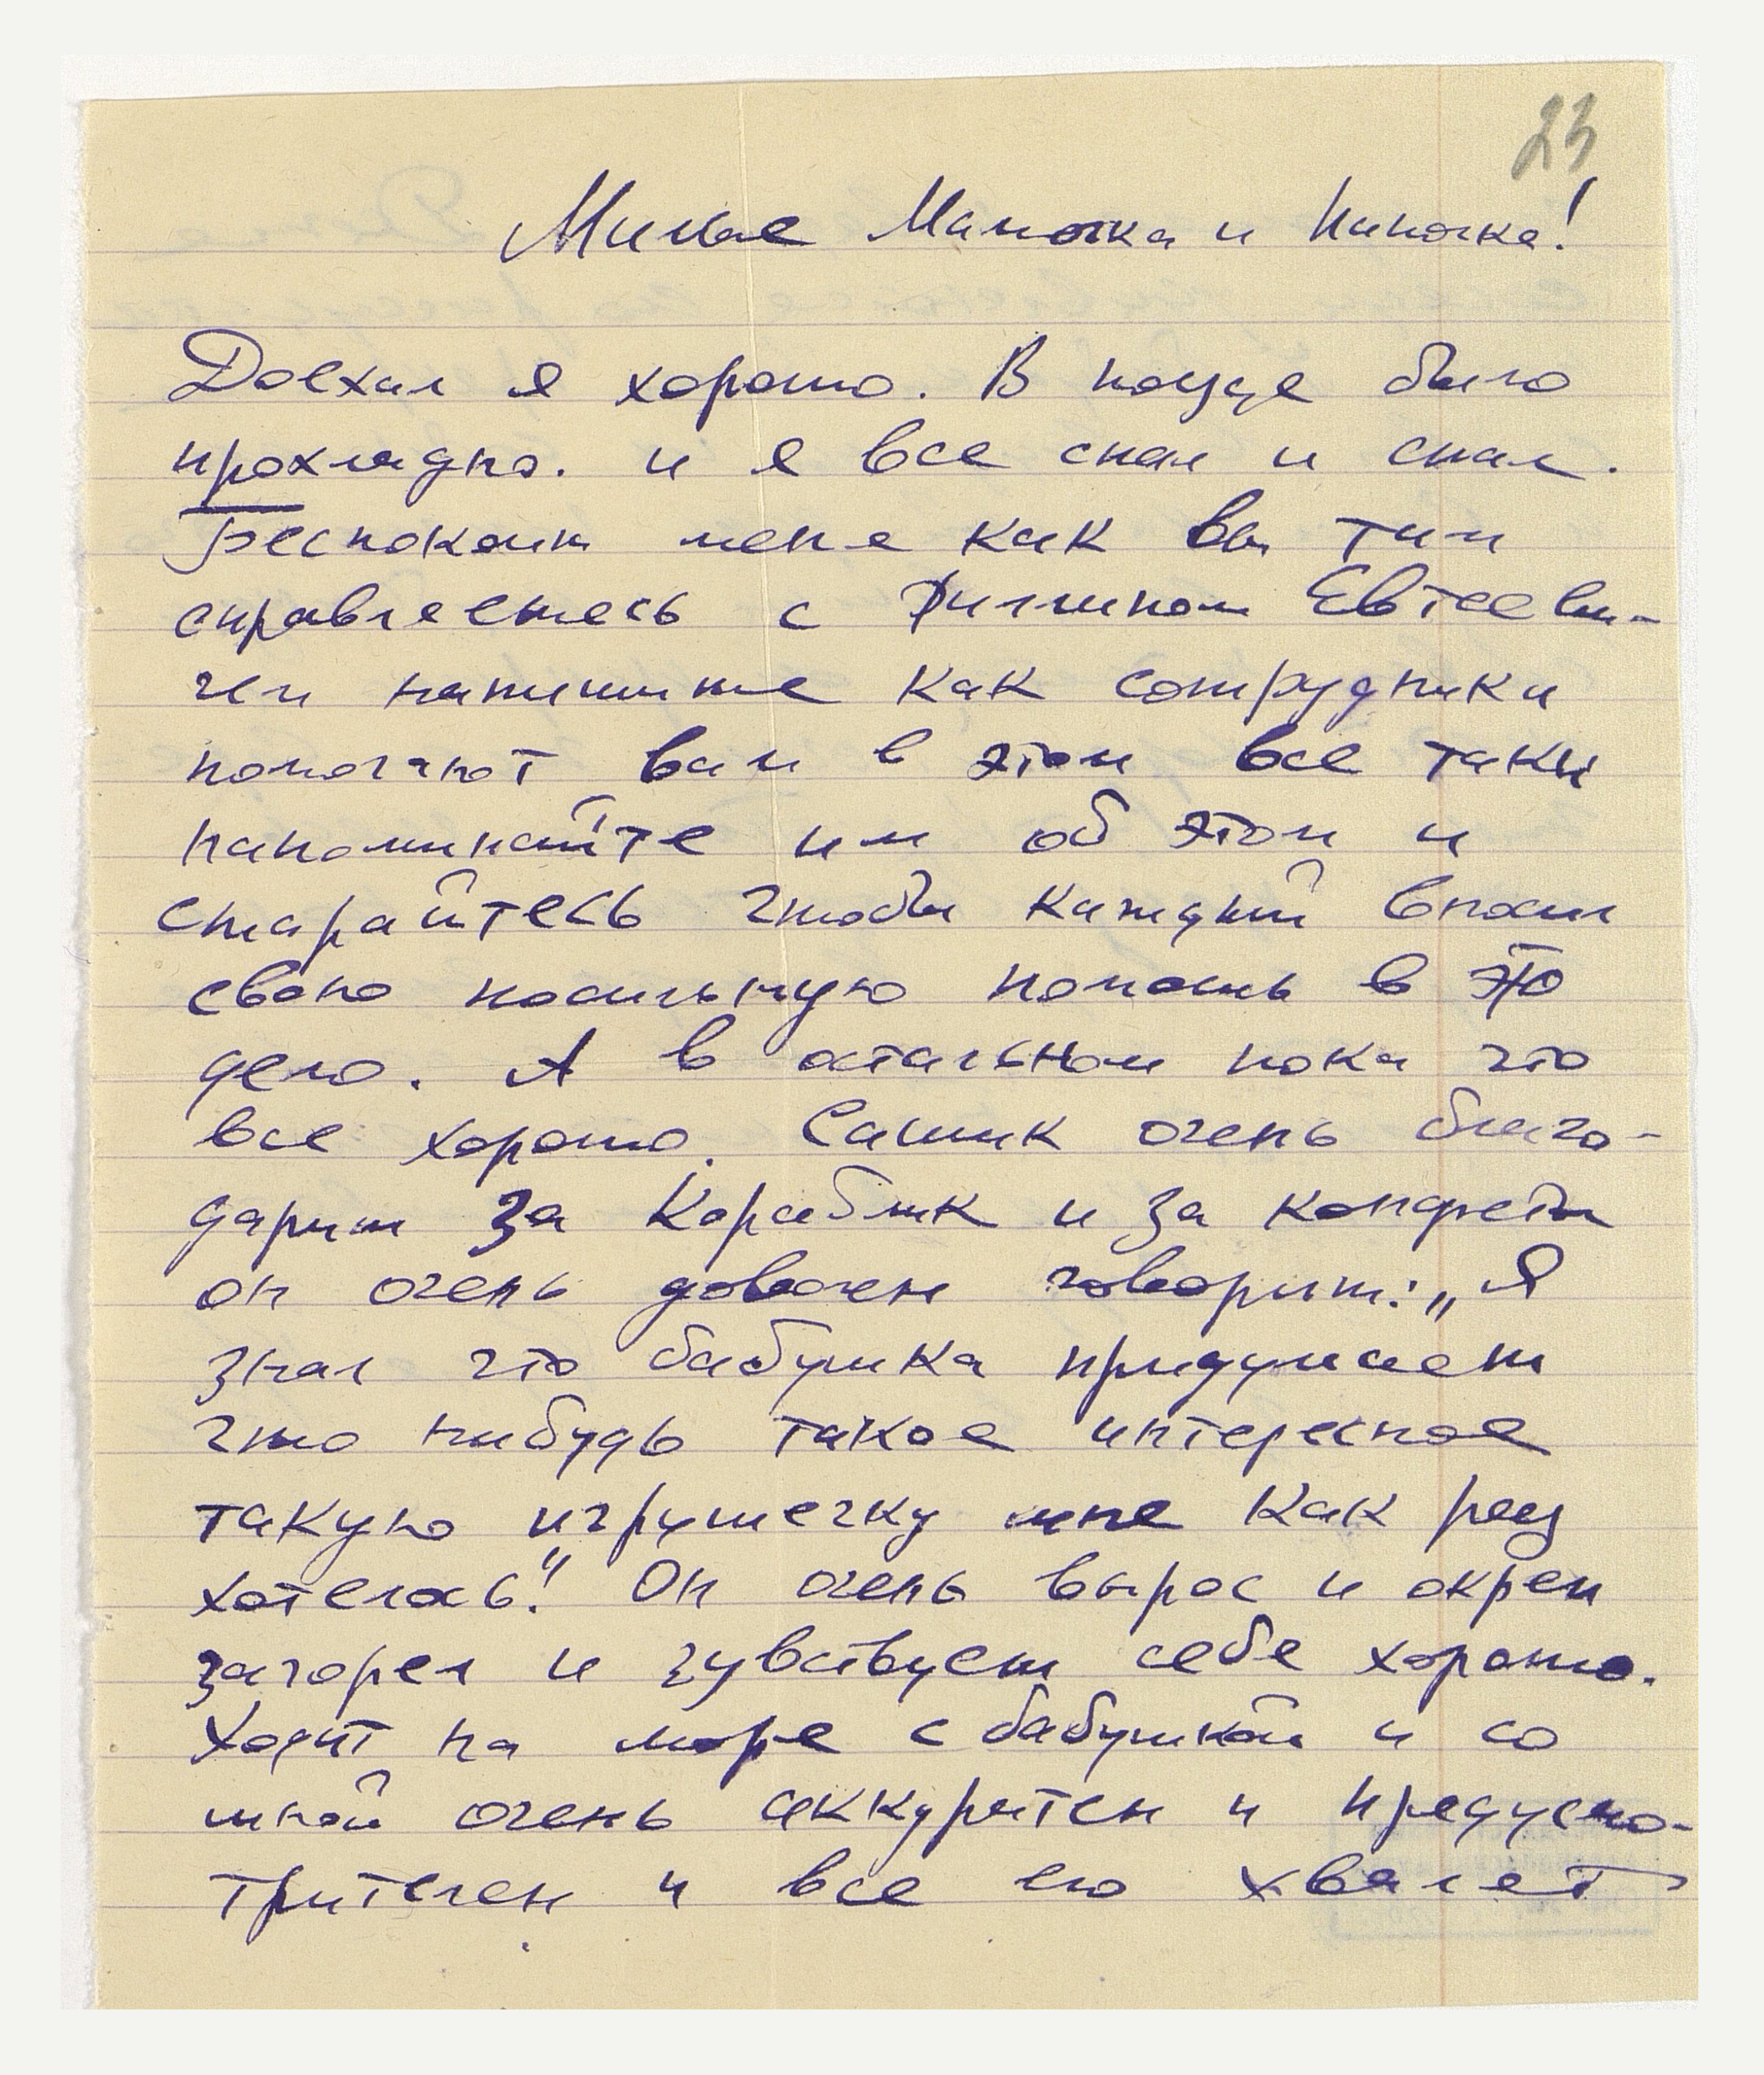 23
Милые Маночка и Ниночка!
Доехал я хорошо. В поезде было
прохладно. и я все спал и спал.
Беспокоит меня как вы там
справляетесь с Филипом Евтееви-
чем напишите как сотрудники
помогают вам в этом все таки
напоминайте им об этом и
старайтесь чтобы каждый вносил
свою посильную помощь в это
дело. А в остальном пока что
все хорошо. Сашик очень благо-
дарит за Кораблик и за конфеты
он очень доволен говорит: „Я
знал что бабушка придумает
что нибудь такое интересное
такую игрушечку мне как раз
хотелось"! Он очень вырос и окреп
загорел и чувствует себя хорошо.
Ходит на море с бабушкой и со
мной очень аккуратен и предусмо-
трителен и все его хвалят